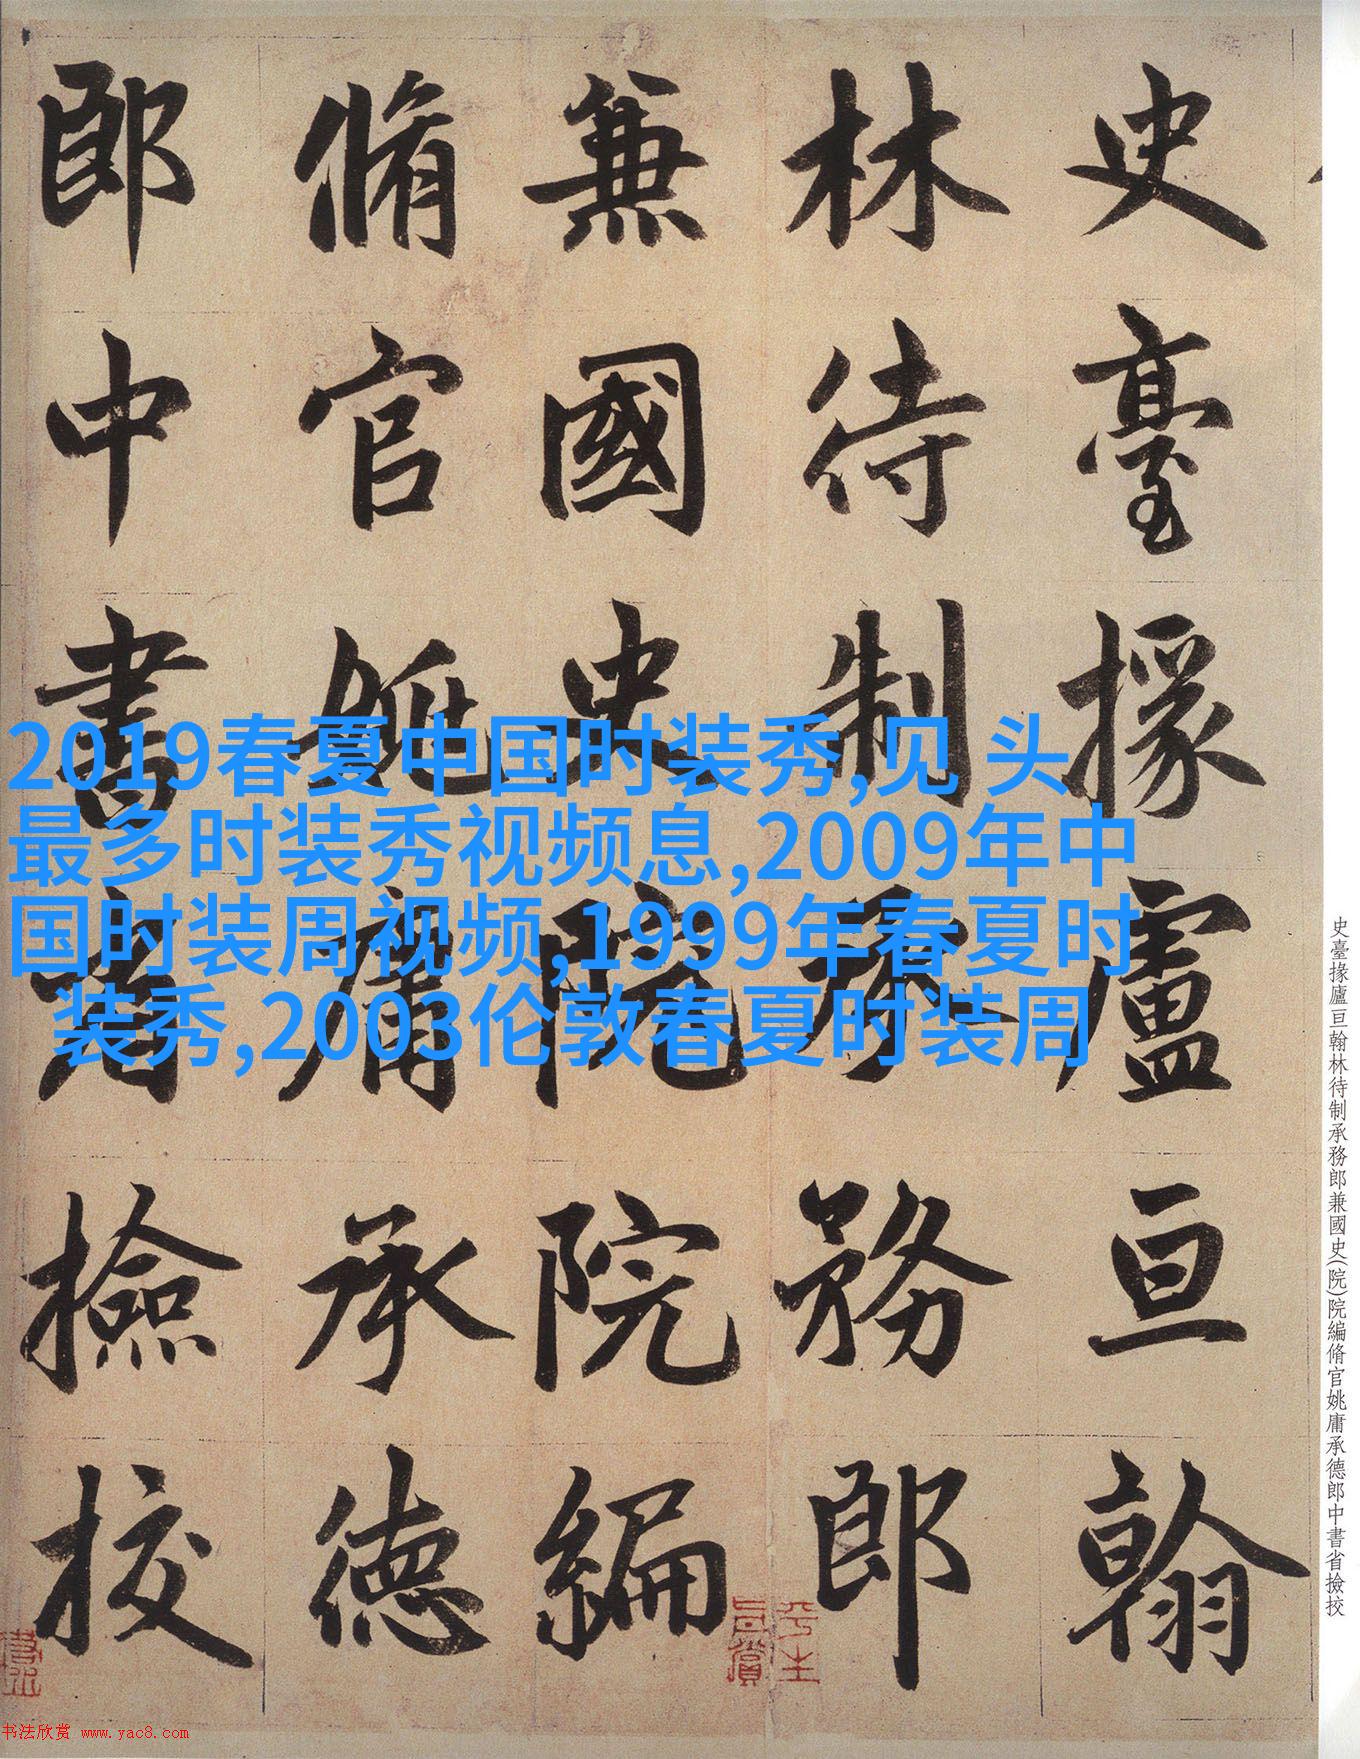 史臺掾盧亘翰
林待制承務郎
兼國史院院編
脩官姚庸承德
郎中書省撿挍
2019春夏中国时装秀,见 头
最多时装秀视频息,2009年中
国时装周视频,1999年春夏时
装秀,2003伦敦春夏时装周
史臺掾廬亘翰林待制承務郎兼國史(院)院編脩官姚庸承德郎中書省撿挍
书法欣赏 www.yac8.com